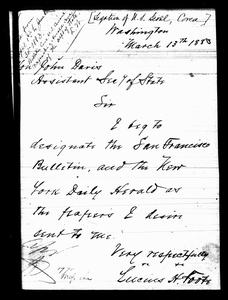 [Legation of U.S. Seoul, Corea.]
Washington
March 13th 1883
Hon John Davis
Assistant Secy of State
Sir
I beg to
designate the San Francisco
Bullitin, and the New
York Daily Herald as
the papers I desire
sent to me.
Very respectfully
Lucius H. Foote